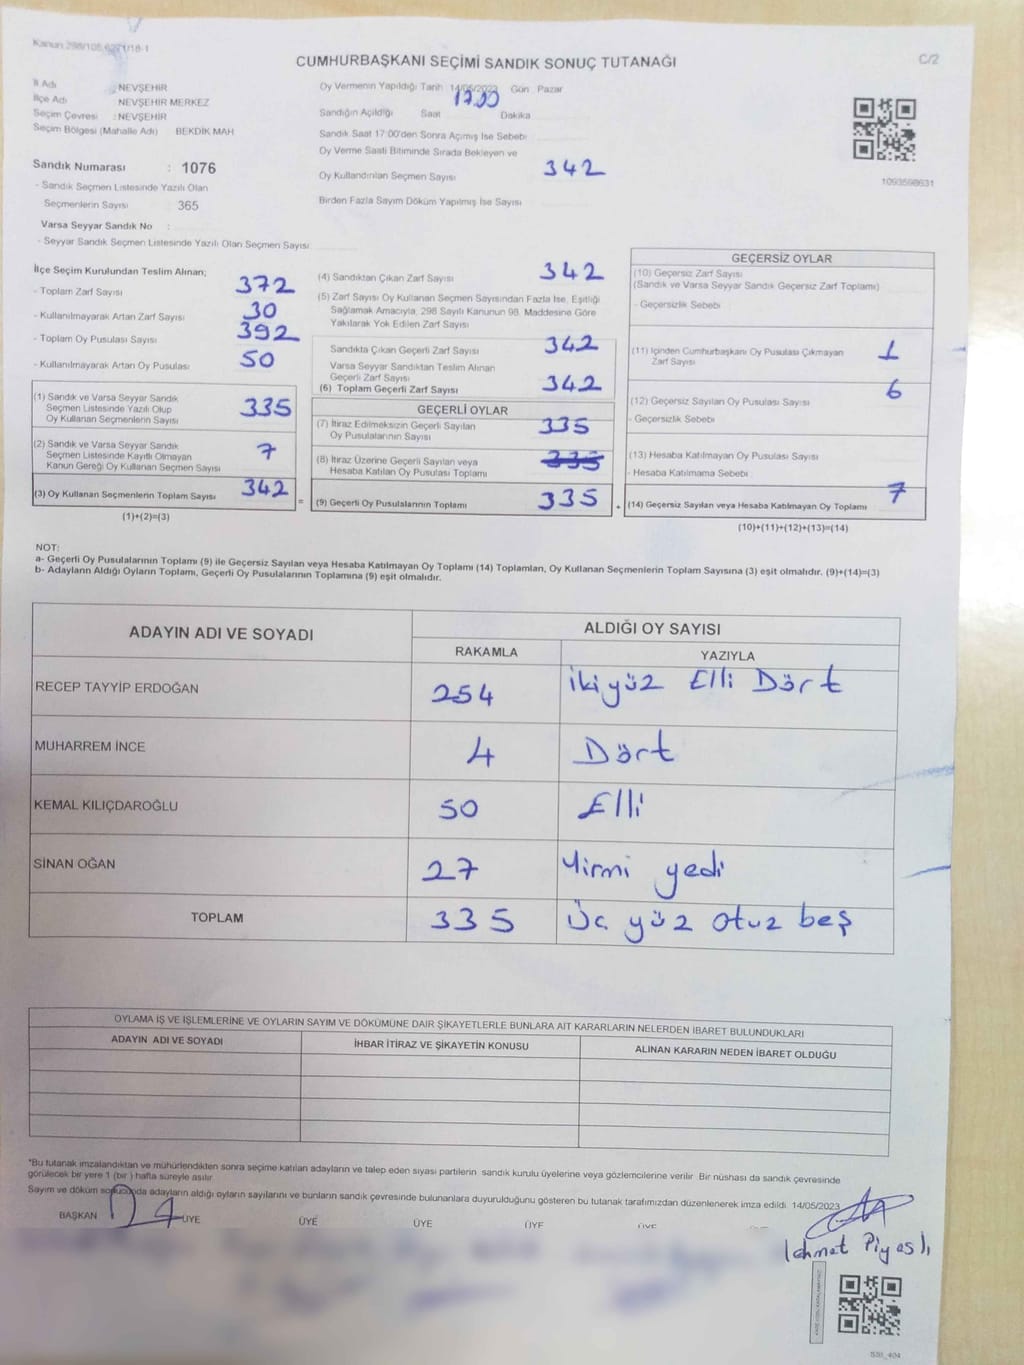 Kanun 298/105,6271/18-1
CUMHURBAŞKANI SEÇİMİ SANDIK SONUÇ TUTANAĞI
C/2
İl Adı : NEVŞEHİR
İlçe Adı : NEVŞEHİR MERKEZ
Seçim Çevresi : NEVŞEHİR
Seçim Bölgesi (Mahalle Adı) BEKDİK MAH
Sandık Numarası : 1076
- Sandık Seçmen Listesinde Yazılı Olan
Seçmenlerin Sayısı 365
Varsa Seyyar Sandık No :
- Seyyar Sandık Seçmen Listesinde Yazılı Olan Seçmen Sayısı
Oy Vermenin Yapıldığı Tarih 14/05/2023 Gün Pazar
17.00
Sandığın Açıldığı Saat Dakika
Sandık Saat 17:00'den Sonra Açımış İse Sebebi
Oy Verme Saati Bitiminde Sırada Bekleyen ve
Oy Kullandırılan Seçmen Sayısı 342
Birden Fazla Sayım Döküm Yapılmış İse Sayısı
1093598631
İlçe Seçim Kurulundan Teslim Alınan;
- Toplam Zarf Sayısı 372
- Kullanılmayarak Artan Zarf Sayısı 30
- Toplam Oy Pusulası Sayısı 392
- Kullanılmayarak Artan Oy Pusulası 50
(1) Sandık ve Varsa Seyyar Sandık
Seçmen Listesinde Yazılı Olup
Oy Kullanan Seçmenlerin Sayısı 335
(2) Sandık ve Varsa Seyyar Sandık
Seçmen Listesinde Kayıtlı Olmayan
Kanun Gereği Oy Kullanan Seçmen Sayısı 7
(3) Oy Kullanan Seçmenlerin Toplam Sayısı 342
(1)+(2)=(3)
=
(4) Sandıktan Çıkan Zarf Sayısı 342
(5) Zarf Sayısı Oy Kullanan Seçmen Sayısından Fazla İse, Eşitliği
Sağlamak Amacıyla, 298 Sayılı Kanunun 98. Maddesine Göre
Yakılarak Yok Edilen Zarf Sayısı
Sandıkta Çıkan Geçerli Zarf Sayısı 342
Varsa Seyyar Sandıktan Teslim Alınan
Geçerli Zarf Sayısı
(6) Toplam Geçerli Zarf Sayısı 342
GEÇERLİ OYLAR
(7) İtiraz Edilmeksizin Geçerli Sayılan
Oy Pusulalarının Sayısı 335
(8) İtiraz Üzerine Geçerli Sayılan veya
Hesaba Katılan Oy Pusulası Toplamı 335
(9) Geçerli Oy Pusulalarının Toplamı 335
+
GEÇERSİZ OYLAR
(10) Geçersiz Zarf Sayısı
(Sandık ve Varsa Seyyar Sandık Geçersiz Zarf Toplamı)
- Geçersizlik Sebebi
(11) İçinden Cumhurbaşkanı Oy Pusulası Çıkmayan
Zarf Sayısı 1
(12) Geçersiz Sayılan Oy Pusulası Sayısı 6
- Geçersizlik Sebebi
(13) Hesaba Katılmayan Oy Pusulası Sayısı
- Hesaba Katılmama Sebebi
(14) Geçersiz Sayılan veya Hesaba Katılmayan Oy Toplamı 7
(10)+(11)+(12)+(13)=(14)
NOT:
a- Geçerli Oy Pusulalarının Toplamı (9) ile Geçersiz Sayılan veya Hesaba Katılmayan Oy Toplamı (14) Toplamları, Oy Kullanan Seçmenlerin Toplam Sayısına (3) eşit olmalıdır. (9)+(14)=(3)
b- Adayların Aldığı Oyların Toplamı, Geçerli Oy Pusulalarının Toplamına (9) eşit olmalıdır.
ADAYIN ADI VE SOYADI ALDIĞI OY SAYISI
RAKAMLA YAZIYLA
RECEP TAYYİP ERDOĞAN 254 İkiyüz Elli Dört
MUHARREM İNCE 4 Dört
KEMAL KILIÇDAROĞLU 50 Elli
SİNAN OĞAN 27 Yirmi yedi
TOPLAM 335 Üç yüz otuz beş
OYLAMA İŞ VE İŞLEMLERİNE VE OYLARIN SAYIM VE DÖKÜMÜNE DAİR ŞİKAYETLERLE BUNLARA AİT KARARLARIN NELERDEN İBARET BULUNDUKLARI
ADAYIN ADI VE SOYADI İHBAR İTİRAZ VE ŞİKAYETİN KONUSU ALINAN KARARIN NEDEN İBARET OLDUĞU
*Bu tutanak imzalandıktan ve mühürlendikten sonra seçime katılan adayların ve talep eden siyasi partilerin sandık kurulu üyelerine veya gözlemcilerine verilir. Bir nüshası da sandık çevresinde
görülecek bir yere 1 (bir) hafta süreyle asılır
Sayım ve döküm sonucunda adayların aldığı oyların sayılarını ve bunların sandık çevresinde bulunanlara duyurulduğunu gösteren bu tutanak tarafımızdan düzenlenerek imza edildi. 14/05/2023
BAŞKAN ÜYE ÜYE ÜYE ÜYE ÜYE
Piyaslı